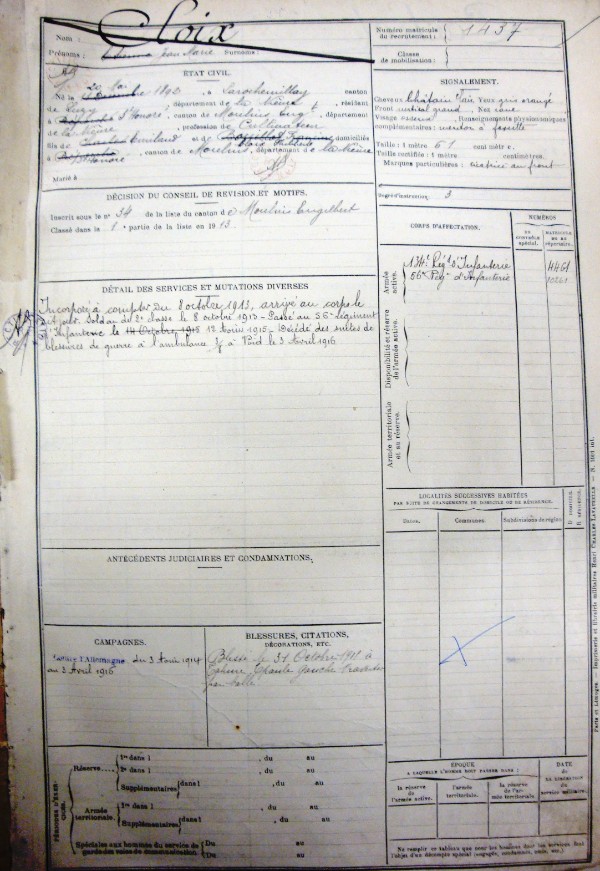 Nom : Cloix
Prénoms : Jean Marie Surnom :
ETAT CIVIL.
Né le 1892, à Larochemillay canton
de Luzy, département de la Nièvre, résidant
à St Honoré, canton de Moulins Eng, département
de la Nièvre, profession de Cultivateur
fils de Emiland et de domiciliés
à St Honoré, canton de Moulins, département de la Nièvre
Marié à
DÉCISION DU CONSEIL DE REVISION ET MOTIFS.
Inscrit sous le n° 34 de la liste du canton de Moulins Engilbert
Classé dans la 1 partie de la liste en 1913.
DÉTAIL DES SERVICES ET MUTATIONS DIVERSES
Incorporé à compter du 8 octobre 1913, arrivé au corps le
dit jour. Soldat de 2e classe le 8 octobre 1913 - Passé au 56e régiment
d'Infanterie le 14 Octobre 1915 12 Août 1915 - Décédé des suites de
blessures de guerre à l'ambulance à Void le 3 Avril 1916
ANTÉCÉDENTS JUDICIAIRES ET CONDAMNATIONS.
CAMPAGNES.
Contre l'Allemagne du 3 Août 1914
au 3 Avril 1916
BLESSURES, CITATIONS,
DÉCORATIONS, ETC.
Blessé le 31 Octobre à
Cuisse gauche
par balle
PÉRIODES D'EXERCICES.
Réserve
1re dans l , du au
2e dans l , du au
Supplémentaires dans l , du au
Armée territoriale.
1re dans l , du au
Supplémentaires dans l , du au
Spéciales aux hommes du service de
garde des voies de communication.
Du au
Du au
Numéro matricule
du recrutement : 1437
Classe
de mobilisation :
SIGNALEMENT.
Cheveux Châtain Yeux gris orangé
Front vertical grand Nez
Visage Renseignements physionomiques
complémentaires : menton à fossette
Taille : 1 mètre 61 centimètres.
Taille rectifiée : 1 mètre centimètres.
Marques particulières : cicatrice au front
Degré d'instruction : 3
CORPS D'AFFECTATION.
NUMÉROS
au contrôle spécial.
matricule ou au répertoire.
Armée active.
134e Régt d'Infanterie 4461
56e Régt d'Infanterie 10261
Disponibilité et réserve de l'armée active.
Armée territoriale et sa réserve.
LOCALITÉS SUCCESSIVES HABITÉES
PAR SUITE DE CHANGEMENTS DE DOMICILE OU DE RÉSIDENCE.
Dates. Communes. Subdivisions de région.
D. DOMICILE.
R. RÉSIDENCE.
ÉPOQUE
A LAQUELLE L'HOMME DOIT PASSER DANS :
la réserve de l'armée active.
l'armée territoriale.
la réserve de l'armée territoriale.
DATE
de la libération du service militaire.
Ne remplir ce tableau que pour les hommes dont les services font
l'objet d'un décompte spécial (engagés, condamnés, omis, etc.)
Paris et Limoges. — Imprimerie et librairie militaires Henri CHARLES-LAVAUZELLE